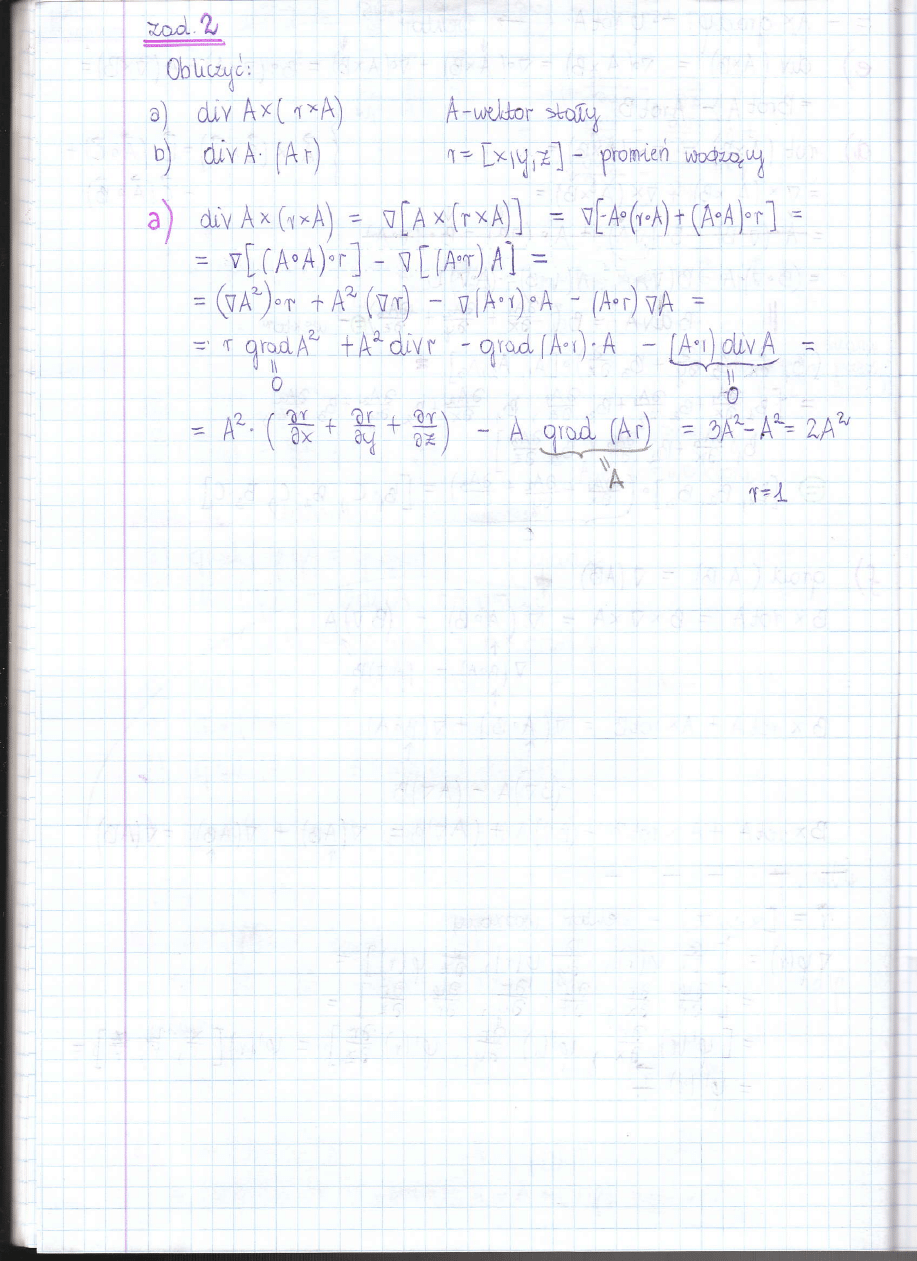 zad. 2
Obliczyć:
a) div A×(r×A) A-wektor stały
b) div A·(Ar) r=[x,y,z] - promień wodzący
a) div A×(r×A) = ∇[A×(r×A)] = ∇[-A∘(r∘A)+(A∘A)∘r] =
= ∇[(A∘A)∘r] - ∇[(A∘r)A] =
= (∇A²)∘r + A²(∇r) - ∇(A∘r)∘A - (A∘r)∇A =
= r grad A² + A² div r - grad(A∘r)·A - (A∘r) div A =
= 0 = 0
= A²·(∂r/∂x + ∂r/∂y + ∂r/∂z) - A grad (Ar) = 3A² - A² = 2A²
= A
r=1